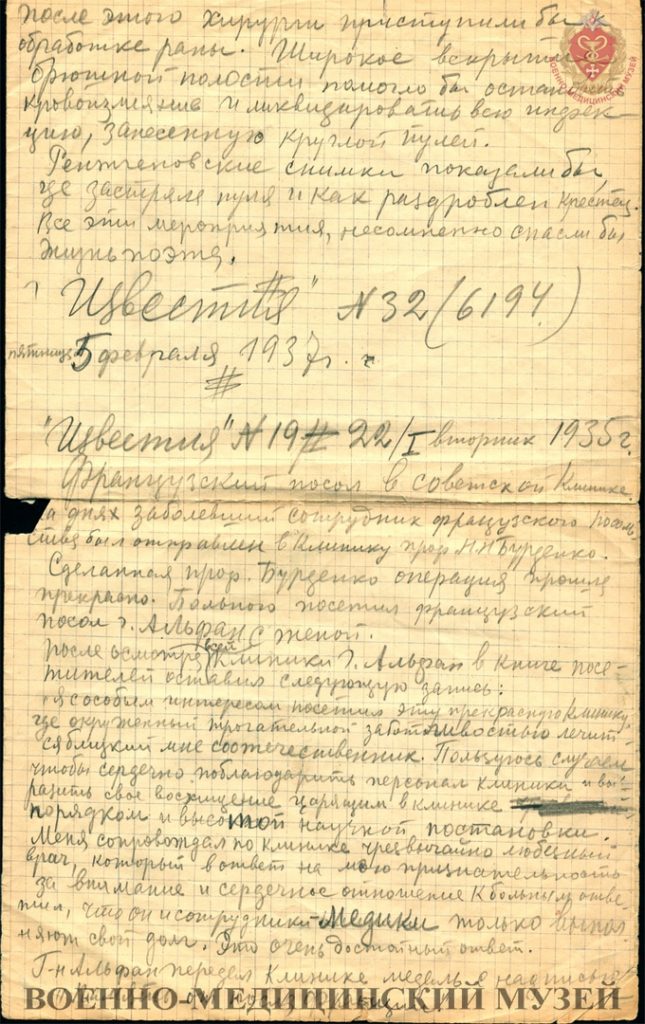 после этого хирурги приступили бы к
обработке раны. Широкое вскрытие
брюшной полости помогло бы остановить
кровоизлияние и ликвидировать всю инфек-
цию, занесенную круглой пулей.
Рентгеновские снимки показали бы,
где застряла пуля и как раздроблен крестец.
Все эти мероприятия, несомненно спасли бы
жизнь поэта.
"Известия" N 32 (6194)
пятница 5 февраля 1937 г.
"Известия" N 19 22/I вторник 1935 г.
Французский посол в советской клинике.
На днях заболевший сотрудник французского посоль-
ства был отправлен в клинику проф. Н.Н Бурденко.
Сделанная проф. Бурденко операция прошла
прекрасно. Больного посетил французский
посол г. Альфан с женой.
После осмотра всей клиники г. Альфан в книге посе-
тителей оставил следующую запись:
"я с особым интересом посетил эту прекрасную клинику
где окруженный трогательной заботливостью лечит-
ся близкий мне соотечественник. Пользуюсь случаем
чтобы сердечно поблагодарить персонал клиники и вы-
разить свое восхищение царящим в клинике
порядком и высотой научной постановки.
Меня сопровождал по клинике чрезвычайно любезный
врач, который в ответ на мою признательность
за внимание и сердечное отношение к больному отве-
тил, что он и сотрудники медики только выпол
няют свой долг. Это очень достойный ответ.
Г-н Альфан передал клинике медаль с надписью
ВОЕННО-МЕДИЦИНСКИЙ МУЗЕЙ
ВОЕННО-МЕДИЦИНСКИЙ МУЗЕЙ